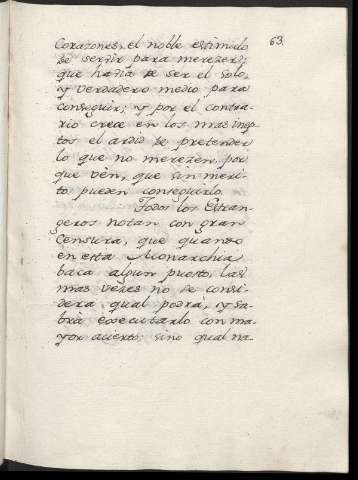 63.
Corazones, el noble estimulo
de servir para merezer;
que havia de ser el solo,
y verdadero medio para
conseguir; y por el contra-
rio crece en los mas inep-
tos el ardid de pretender
lo que no merezen, por
que vèn, que sin meri-
to pueden conseguirlo.
Todos los Estran-
geros notan con gran
Censura, que quando
en esta Monarchia
baca algun puesto, las
mas vezes no se consi-
dera qual podrà, y sa-
brà executarlo con ma-
yor acierto; sino qual na-